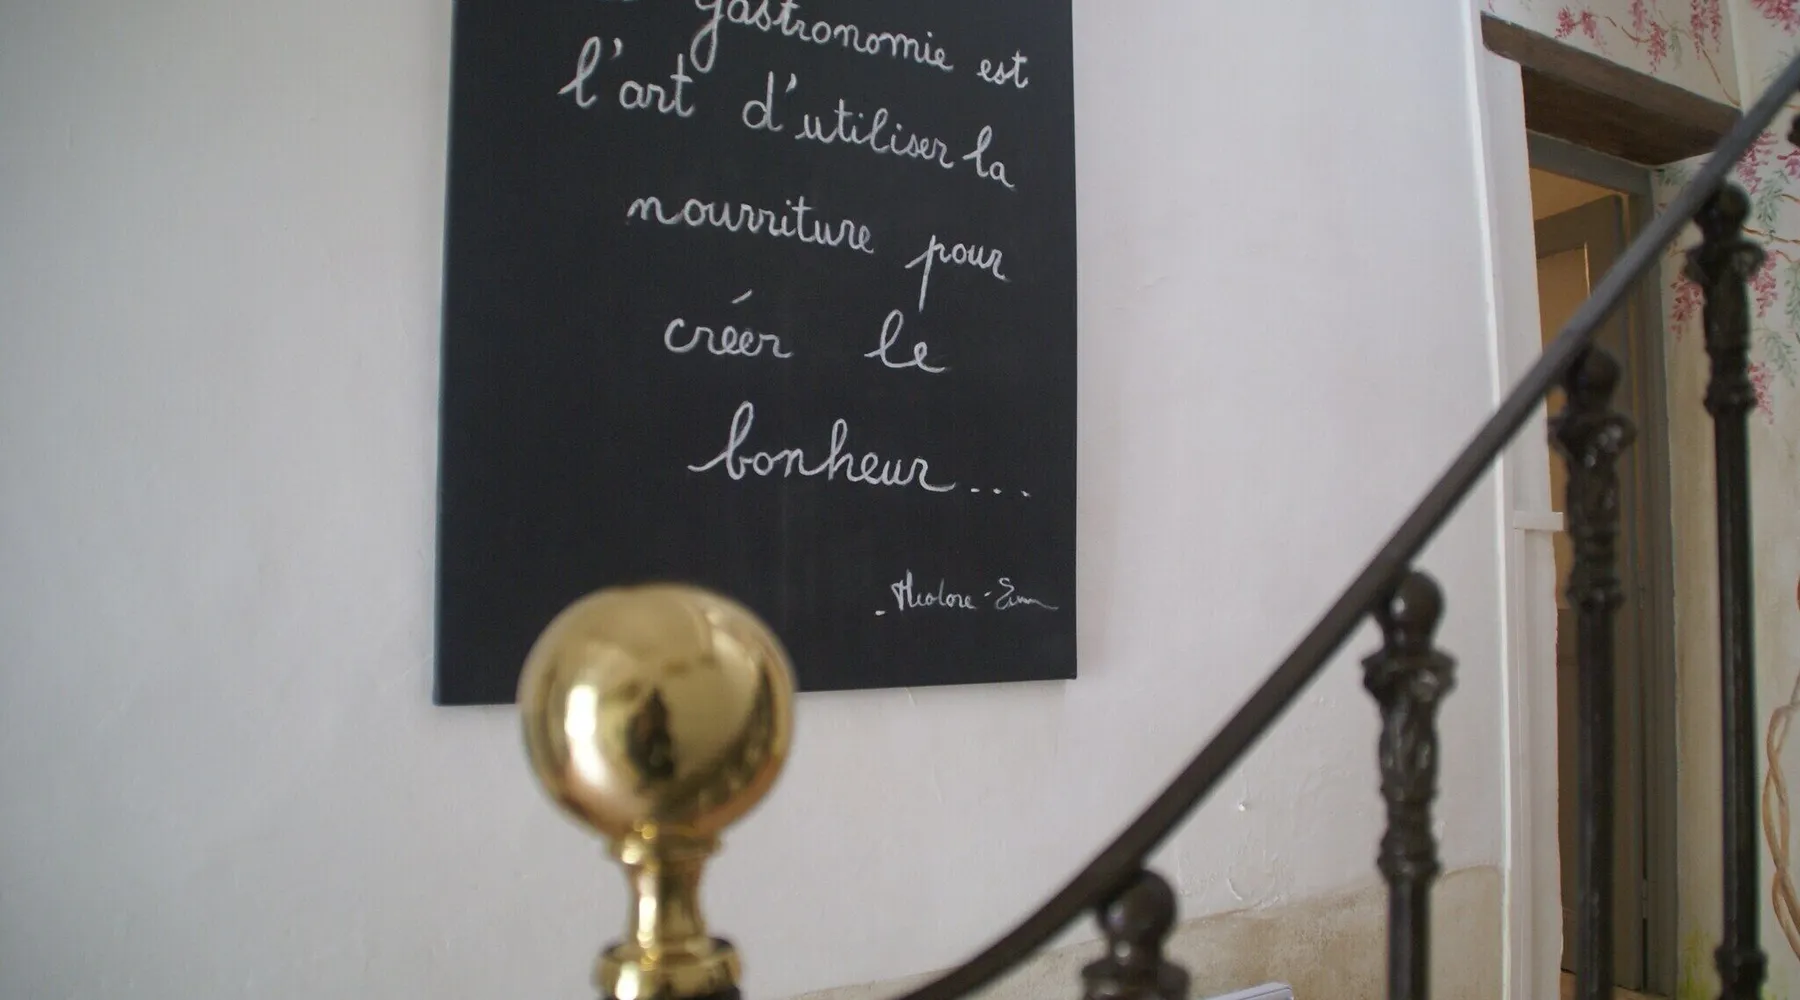 gastronomie est
l'art d'utiliser la
nourriture pour
créer le
bonheur....